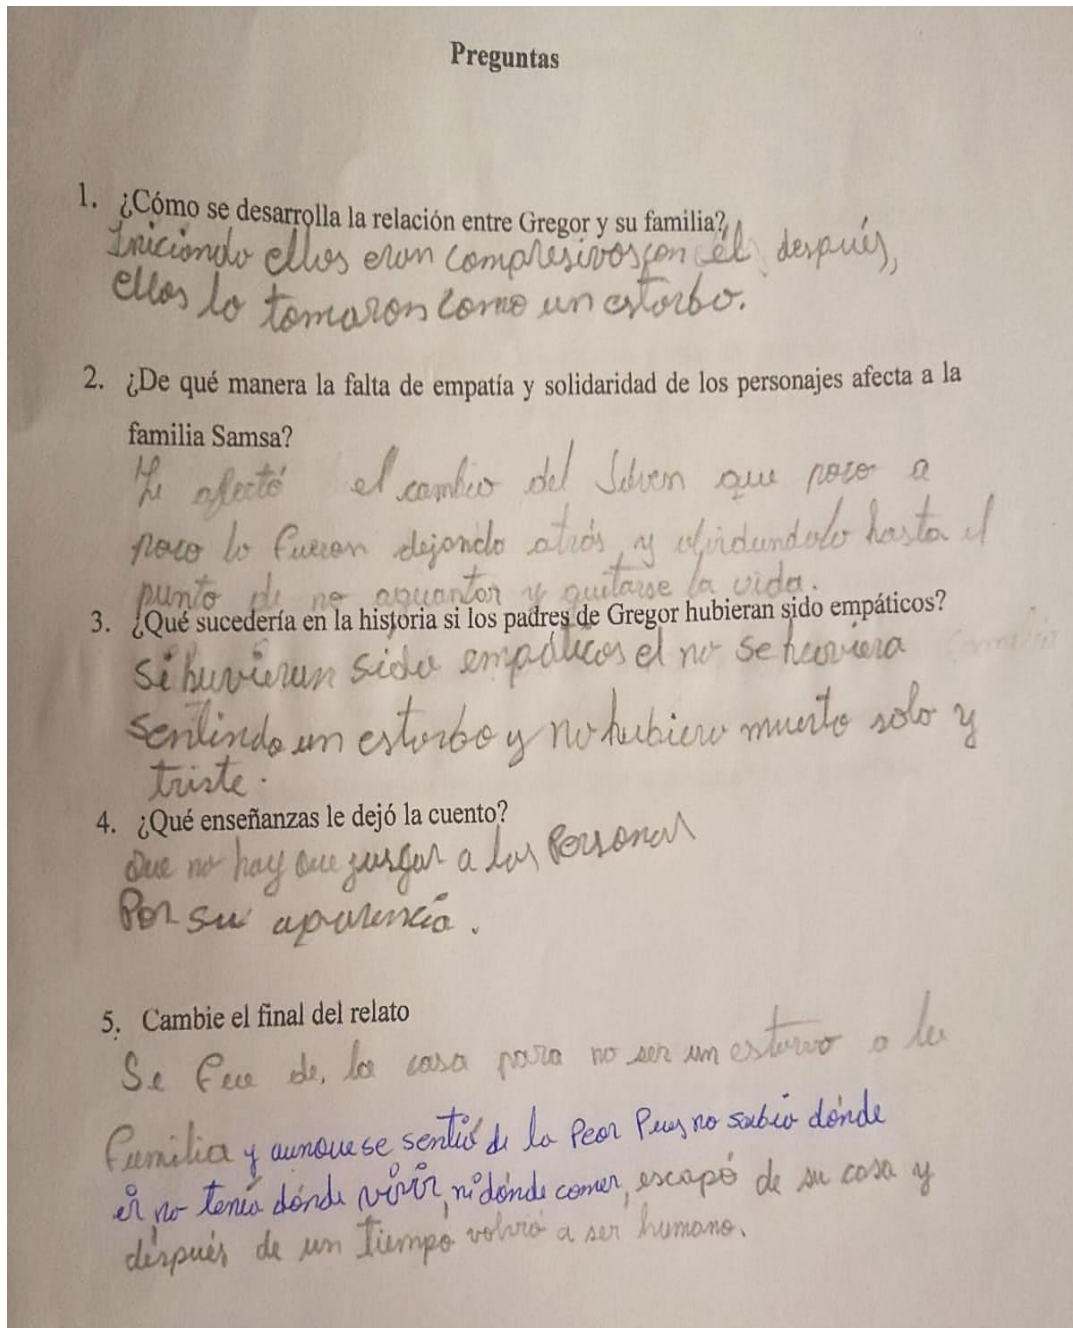 Preguntas
1. ¿Cómo se desarrolla la relación entre Gregor y su familia?
Iniciondo ellos eran compresivos con él, después,
ellos lo tomaron como un estorbo.
2. ¿De qué manera la falta de empatía y solidaridad de los personajes afecta a la
familia Samsa?
Le afectó el cambio del que poco a
poco lo fueron dejando atrás, y olvidandolo hasta el
punto de no aguantar y quitarse la vida.
3. ¿Qué sucedería en la historia si los padres de Gregor hubieran sido empáticos?
Si huvieran sido empáticos el no se huviera
sentindo un estorbo y no hubiera muerto solo y
triste.
4. ¿Qué enseñanzas le dejó la cuento?
Que no hay que jusgar a las Personas
Por su aparencia.
5. Cambie el final del relato
Se fue de, la casa para no ser un estorvo a la
familia y aunque se sentió de lo Peor Pues no sabia dónde
ir no tenia dónde vivir, ni dónde comer, escapó de su casa y
después de un tiempo volvió a ser humano.